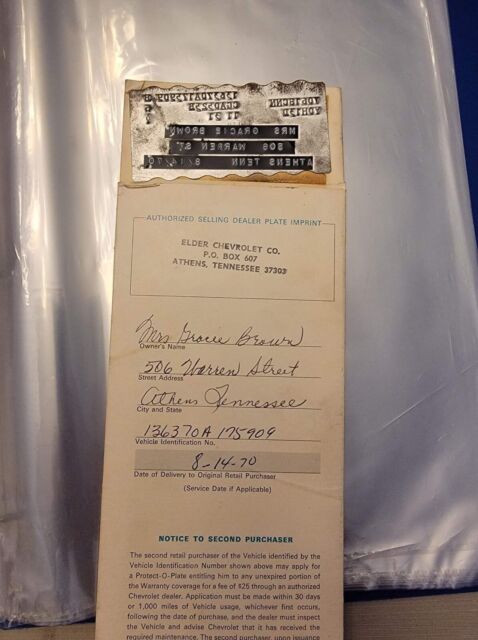 MRS GRACIE BROWN
506 WARREN ST
ATHENS TENN 8/14/70
AUTHORIZED SELLING DEALER PLATE IMPRINT
ELDER CHEVROLET CO.
P.O. BOX 607
ATHENS, TENNESSEE 37303
Mrs Gracie Brown
Owner's Name
506 Warren Street
Street Address
Athens Tennessee
City and State
136370A 175909
Vehicle Identification No.
8-14-70
Date of Delivery to Original Retail Purchaser
(Service Date if Applicable)
NOTICE TO SECOND PURCHASER
The second retail purchaser of the Vehicle identified by the
Vehicle Identification Number shown above may apply for
a Protect-O-Plate entitling him to any unexpired portion of
the Warranty coverage for a fee of $25 through an authorized
Chevrolet dealer. Application must be made within 30 days
or 1,000 miles of Vehicle usage, whichever first occurs,
following the date of purchase, and the dealer must inspect
the Vehicle and advise Chevrolet that it has received the
required maintenance. The second purchaser, upon issuance